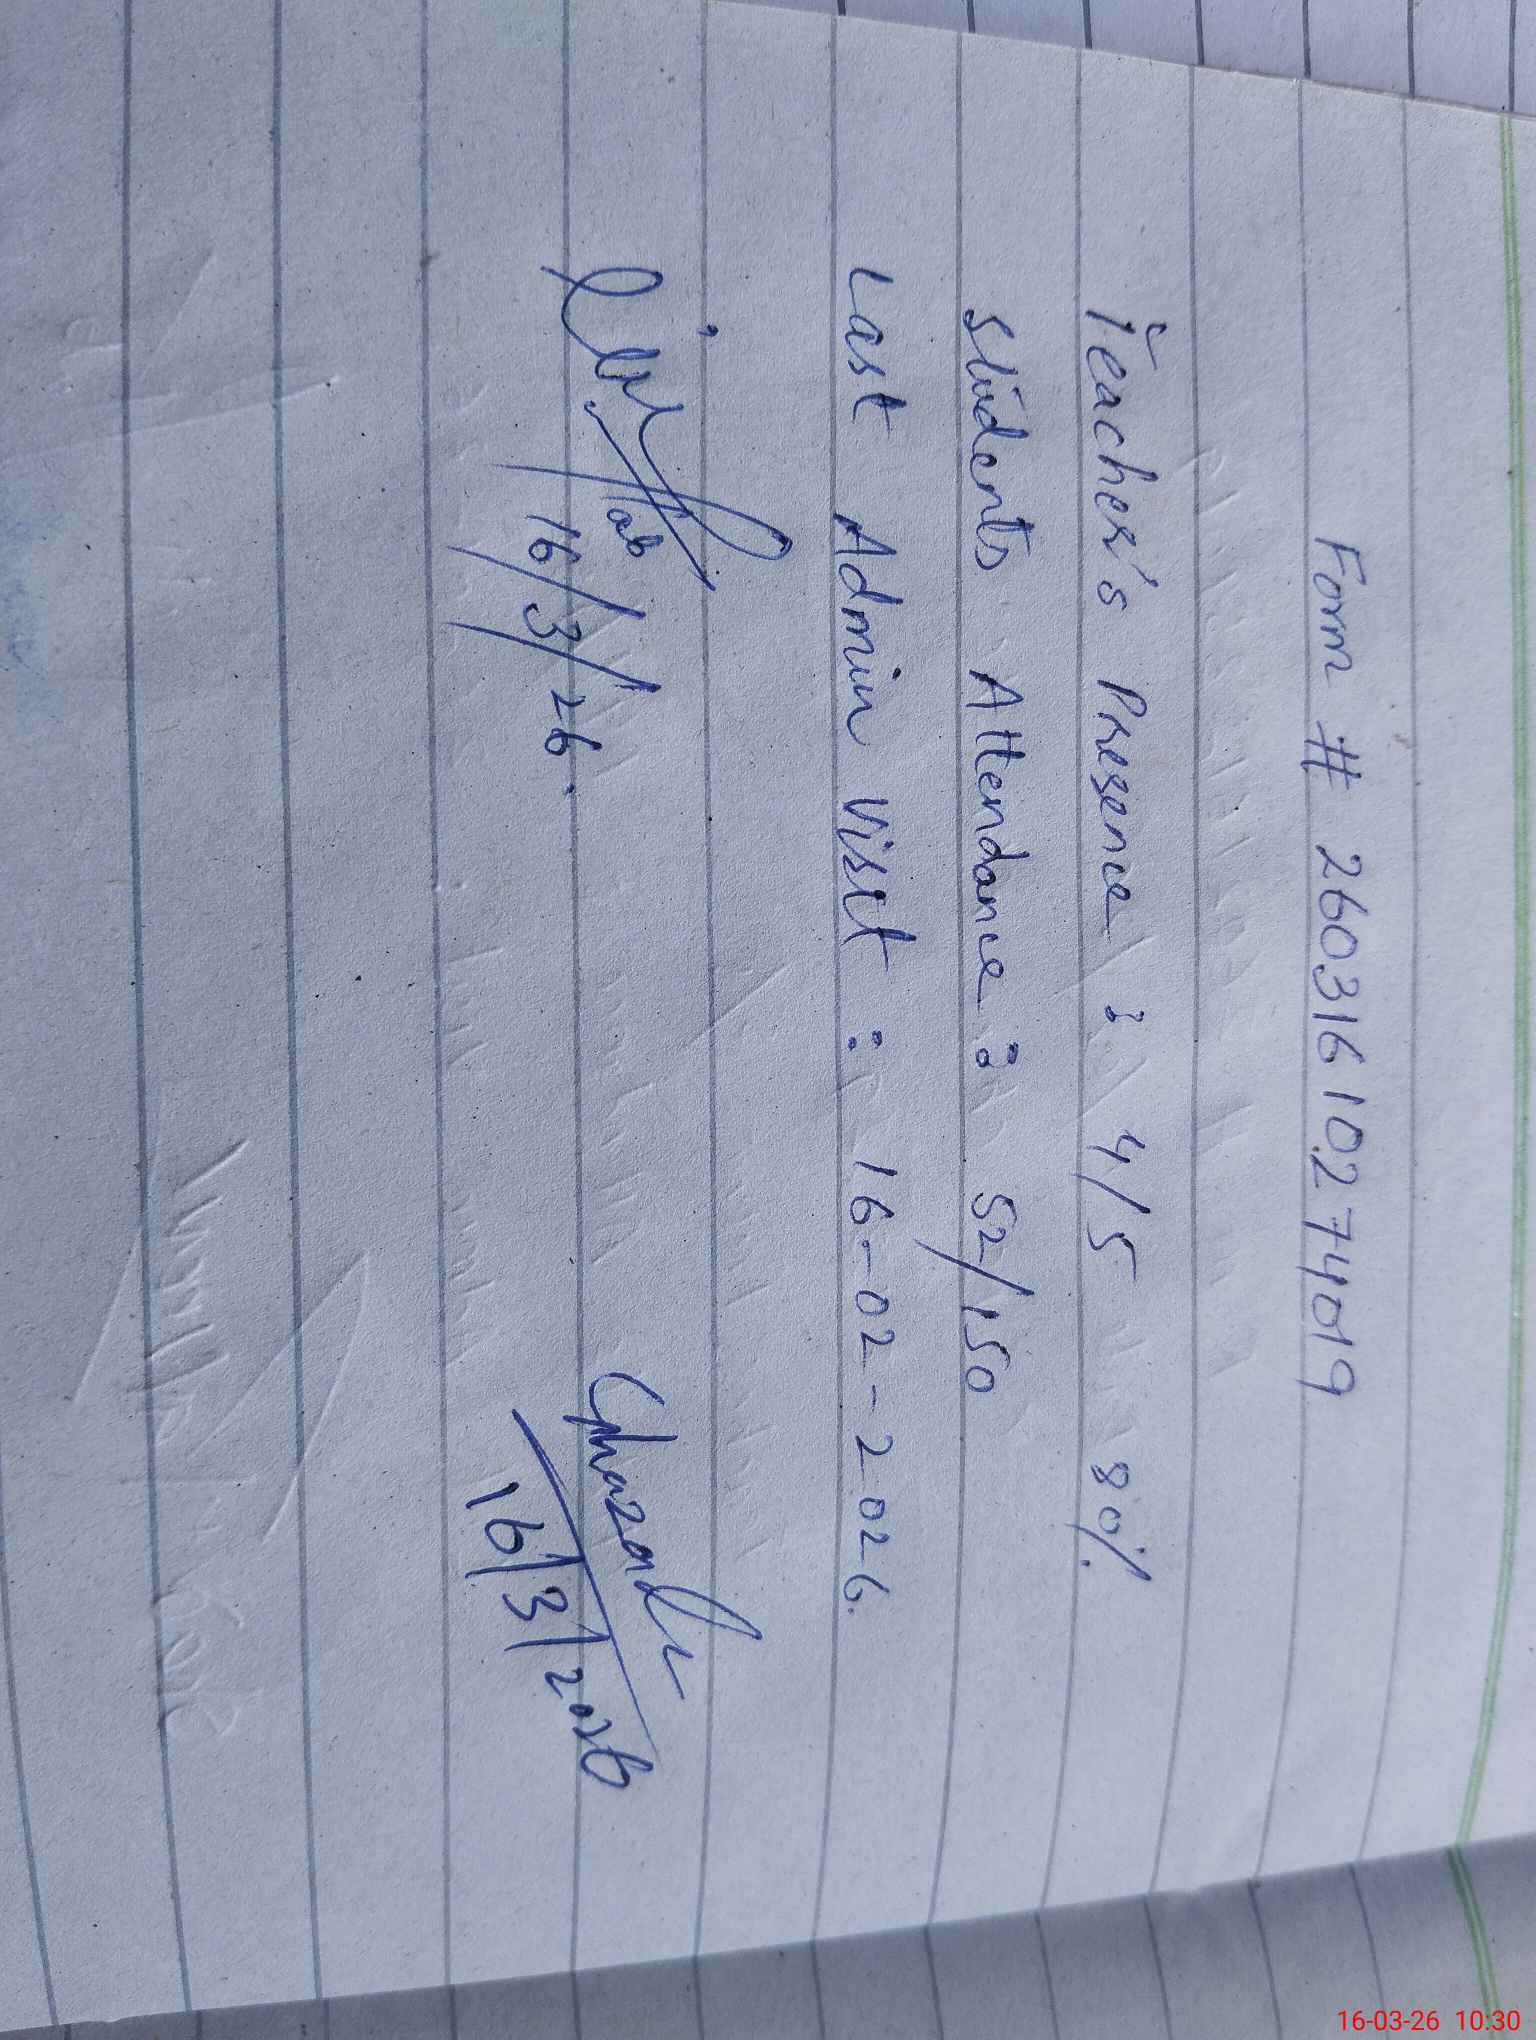 Form # 26031610274019
Teacher's Presence : 4/5 80%
Students Attendance : 52/150
Last Admin Visit : 16-02-2026.
16/3/26.
16/3/2026
16-03-26 10:30